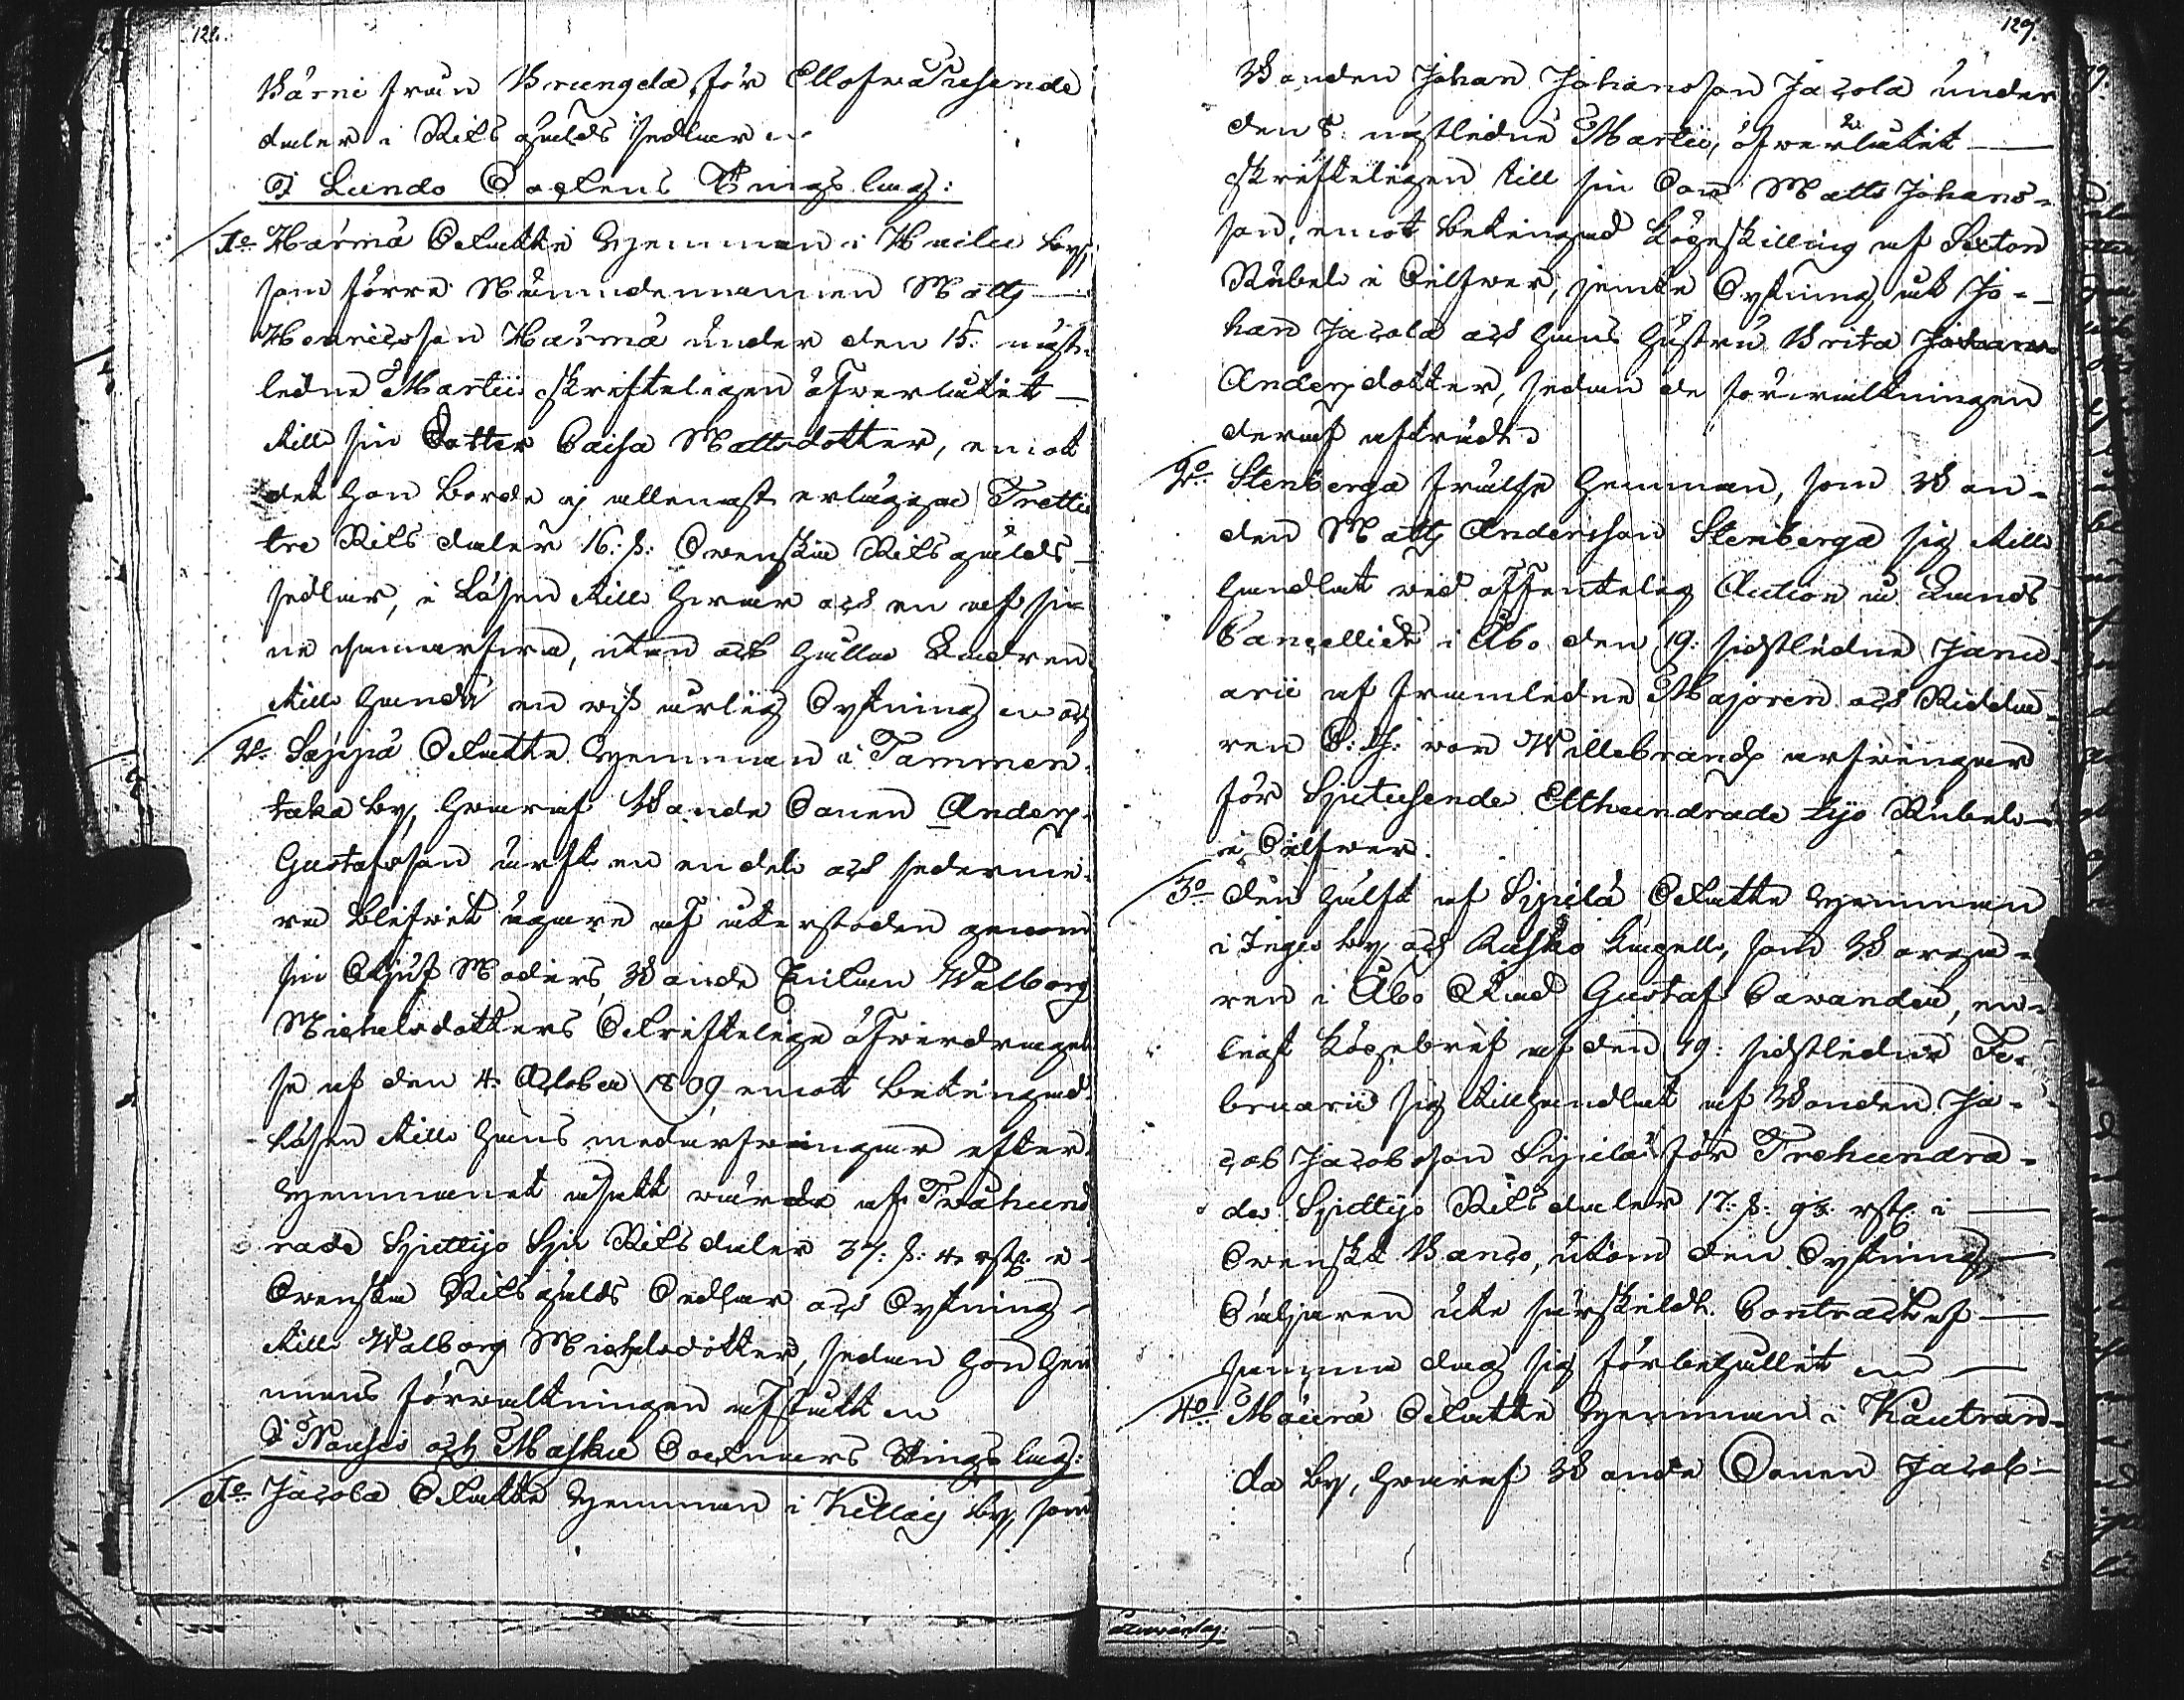 128.
Bärni från Brungela, för Ellofwatusende
daler i Riksgälds sedlar
I Lundo Soknens Tingslag:
1o Härmä Skatte Hemman i by,
som förre Nämndemannen Matts
Henricsson Härmä under den 15. näst-
ledne Martii skrifteligen öfwerlåtit
till sin Dotter Caisa Mattsdotter, emot
det hon borde ej allenast erlägga Trettio
tre Riks daler 16. s: Swenska Riksgälds
sedlar, i lösen till hwar och en af si-
ne samarfwa, utan och hålla Fadren
till handa en wiss årlig Sytning
2o Seppä Skatte Hemman i Tammen-
taka by, hwaraf Bonde Sonen Anders
Gustafsson ärft en en del och sederme-
ra blifwit ägare af återstoden genom
sin Stjuf Moders, Bonde Enkan Walborg
Michelsdotters Skriftelige öfwerdragel-
se af den 4. October 1809 emot betingad
lösen till hans medarfwingar efter
Hemmanet åsatt wärde af Twåhund-
rade Sjuttijo Sju Riksdaler 37. s: 4 rst: i
Swenska Riksgälds Sedlar och Sytning
till Walborg Michelsdotter, sedan hon hem-
mans förwaltningen afstått
I Nousis och Masku Soknars Tingslag:
1o Jacola Skatte Hemman i Killais by, som
129.
Bonden Johan Johansson Jacola under
den 8. nästledne Martii, öfwerlåtit
skrifteligen till sin Son Matts Johans-
son, emot betingad Köpeskilling af Sexton
Rubel i Silfwer, jemte Sytning åt Jo-
han Jacola och hans hustru Brita
Andersdotter, sedan de förwaltningen
deraf afträdt
2o Stenberga frälse hemman, som Bon-
den Matts Andersson Stenberga sig till
handlat wid offentelig Auction å Lands
Cancelliet i Åbo den 19. sistledne Janu-
arii af framledne Majoren och Ridda-
ren von Willebrands arfwingar
för Sjutusende Etthundrade tijo Rubel
i Silfwer.
3o Den hälft af Sipilä Skatte Hemman
i by och Rusko Kapell, som Borga-
ren i Åbo Stad Gustaf Sawander, en-
ligt Köpebref af den 19. sistledne Fe-
bruarii sig tillhandlat af Bonden Ja-
cob Jacobsson Sipilä för Trehundra-
de Sjuttijo Riksdaler 17. s: rst: i
Swenskt Banco, utom den Sytning
Säljaren uti särskildt Contract af
samma dag sig förbehållit
4o Mäurä Skatte Hemman i Kautran-
da by, hwaraf Bonde Sonen Jacob